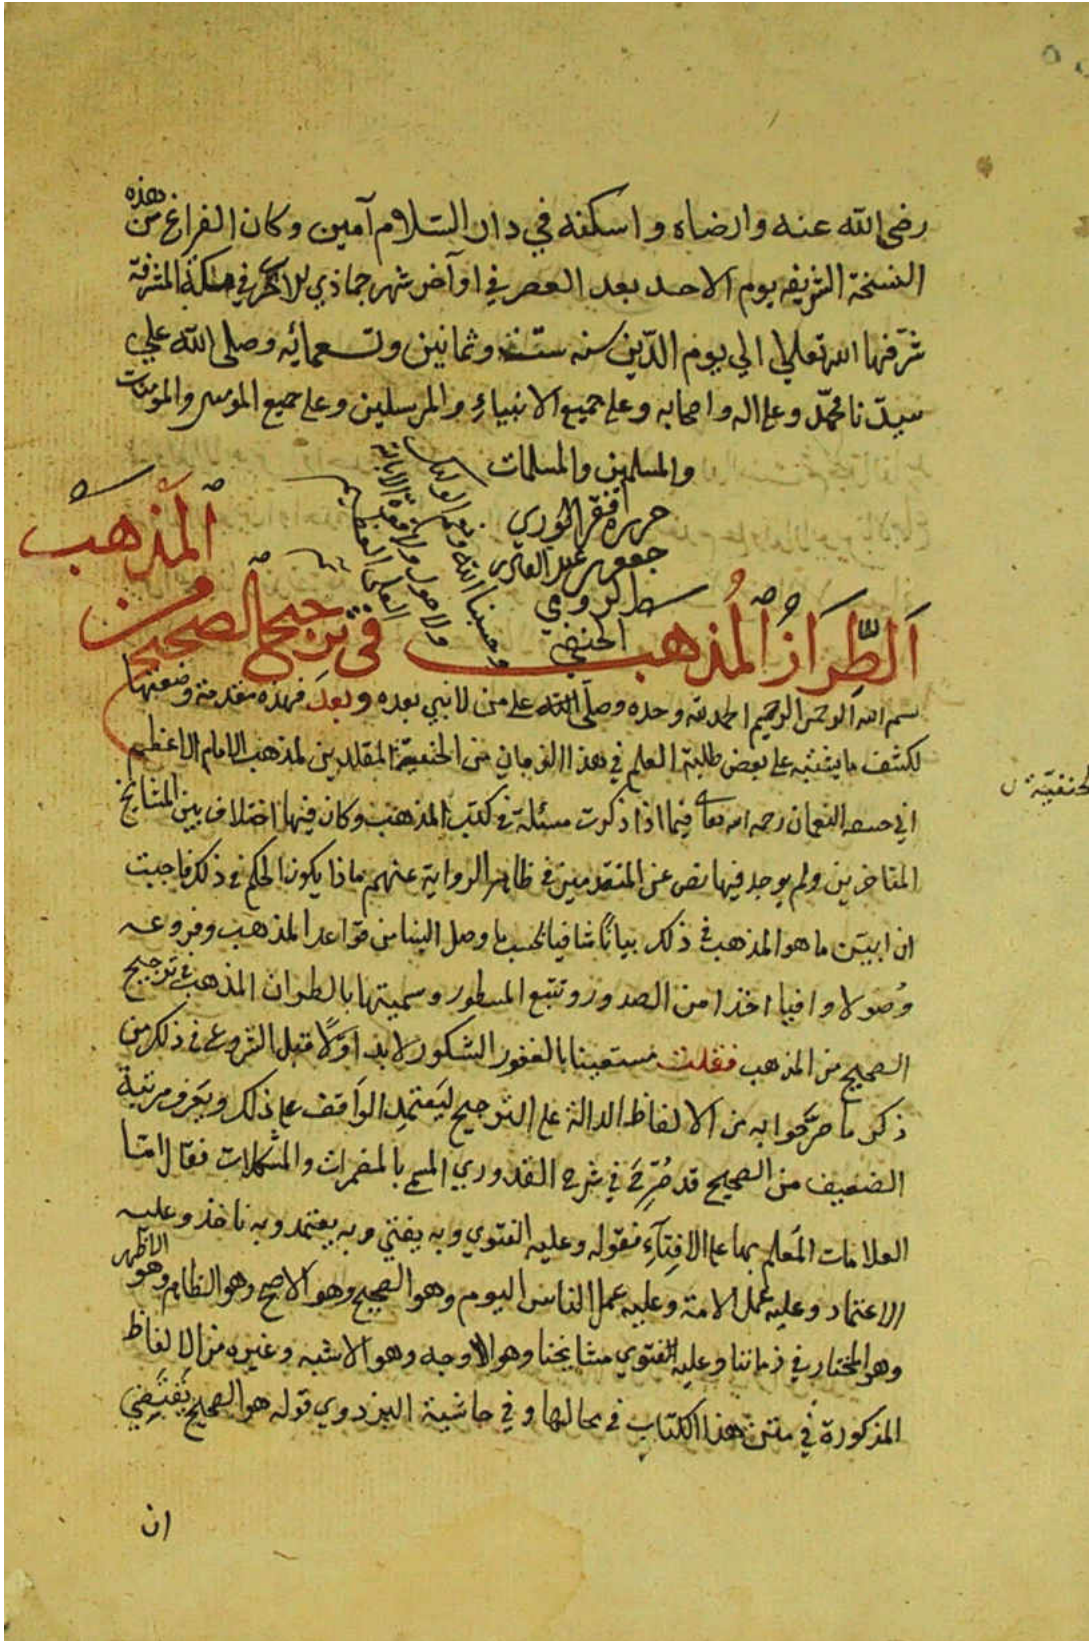 رضى الله عنه وارضاه واسكنه في دار السّلام آمين وكان الفراغ من هذه
النسخة الشريفه يوم الاحد بعد العصر في اوآخر شهر جماذي للاخرى في مكة المشرفة
شرّفها الله تعالى الي يوم الدّين سنه ست وثمانين وتسعمائه وصلى الله علي
سيدّنا محمّد وعلى اله واصحابه وعلى جميع الانبياءِ والمرسلين وعلى جميع المؤمنين والمؤمنات
والمسلمين والمسلمات
حرره افقر الوري
جعفر بن عبد
الرومي
الحنفي
المَذهب
اَلطِّرَازُ المُذهب في ترجيح الصحيح من
بسم الله الرحمن الرحيم الحمد لله وحده وصلّى الله على من لا نبي بعده وبعدَ فهذه مقدمة وضعتها
لكشف ما يشتبه على بعض طلبة العلم في هذا الزمان من الحنفيّة المقلدين لمذهب الامام الاعظم
الحنفيّة
ابي حنيفة النعمان رحمه الله تعالى فيما اذا ذكرت مسئلة في كتب المذهب وكان فيها اختلاف بين المشايخ
المتاخرين ولم يوجد فيها نص عن المتقدمين في ظاهر الرواية عنهم ماذا يكون الحكم في ذلك فاجبت
ان ابيّن ما هو المذهب في ذلك بيانًا شافيا بحسب ما وصل الينا من قواعد المذهب وفروعه
وُصولا وافيا اخذا من الصدور وتتبع المسطور وسميتها بالطراز المذهب في ترجيح
الصحيح من المذهب فقلت مستعينا بالغفور الشكور لابد اوّلًا قبل الشروع في ذلك من
ذكر ما صرّحوا به من الالفاظ الدالة على الترجيح ليَعتمِد الوَاقف على ذلك ويَعرف مرتبة
الضعيف من الصحيح قد صُرِّحَ في شرح القدوري المسمى بالمضمرات والمشكلات فقال امّا
العلامات المُعلم بها على الافتآءِ فقوله وعليه الفتوي وبه يفتي وبه يعتمد وبه ناخذ وعليه
الاعتماد وعليه عمل الامة وعليه عمل الناس اليوم وهو الصحيح وهو الاصح وهو الظاهر وهو الاظهر
وهو المختار في زماننا وعليه الفتوي مشايخنا وهو الاوجه وهو الاشبه وغيره من الالفاظ
المذكورة في متن هذا الكتاب في محالها وفي حاشية البزدوي قوله هو الصحيح يَقتَضِي
ان